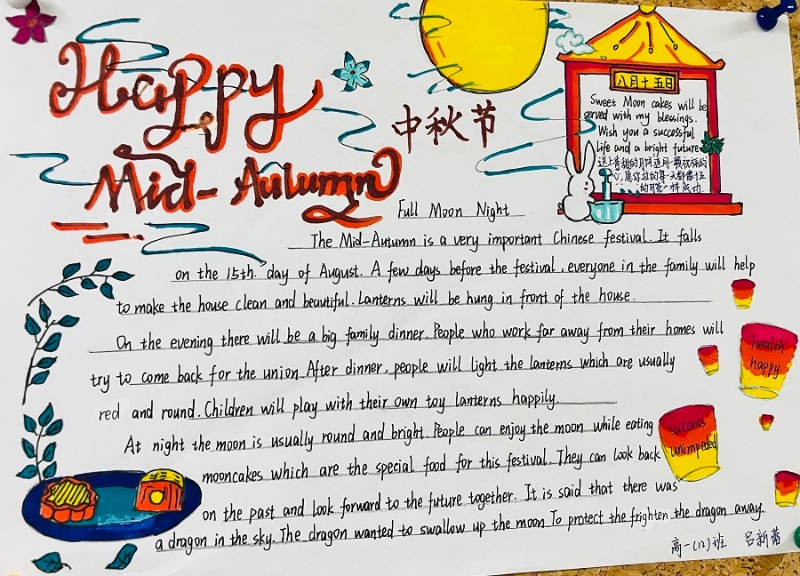 Happy
Mid-Autumn
中秋节
八月十五日
Sweet Moon cakes will be
served with my blessings.
Wish you a successful
life and a bright future
Full Moon Night
The Mid-Autumn is a very important Chinese festival. It falls
on the 15th. day of August. A few days before the festival, everyone in the family will help
to make the house clean and beautiful. Lanterns will be hung in front of the house.
On the evening there will be a big family dinner. People who work far away from their homes will
try to come back for the union. After dinner, people will light the lanterns which are usually
red and round. Children will play with their own toy lanterns happily.
At night the moon is usually round and bright. People can enjoy the moon while eating
mooncakes which are the special food for this festival. They can look back
on the past and look forward to the future together. It is said that there was
a dragon in the sky. The dragon wanted to swallow up the moon To protect the frighten the dragon away
health
happy
success
unimpeded
高一(12)班 吕新蕾